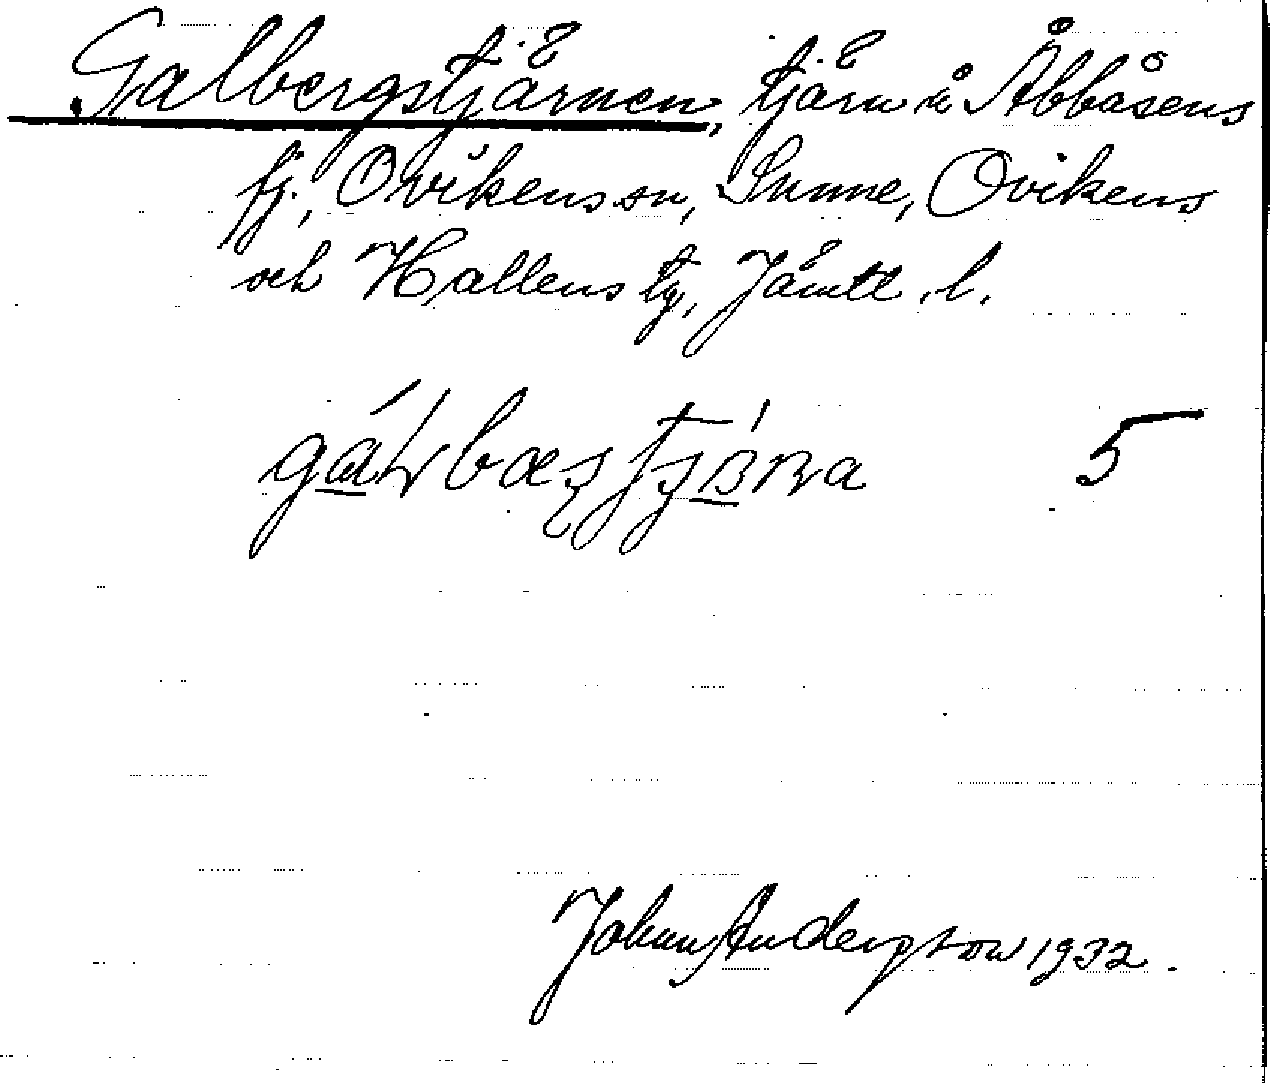 Galbergstjärnen, tjärn å Åbbåsens
fj., Ovikens sn, Sunne, Ovikens
och Hallens tg, Jämtl. l.
5
Johan Andersson 1932.